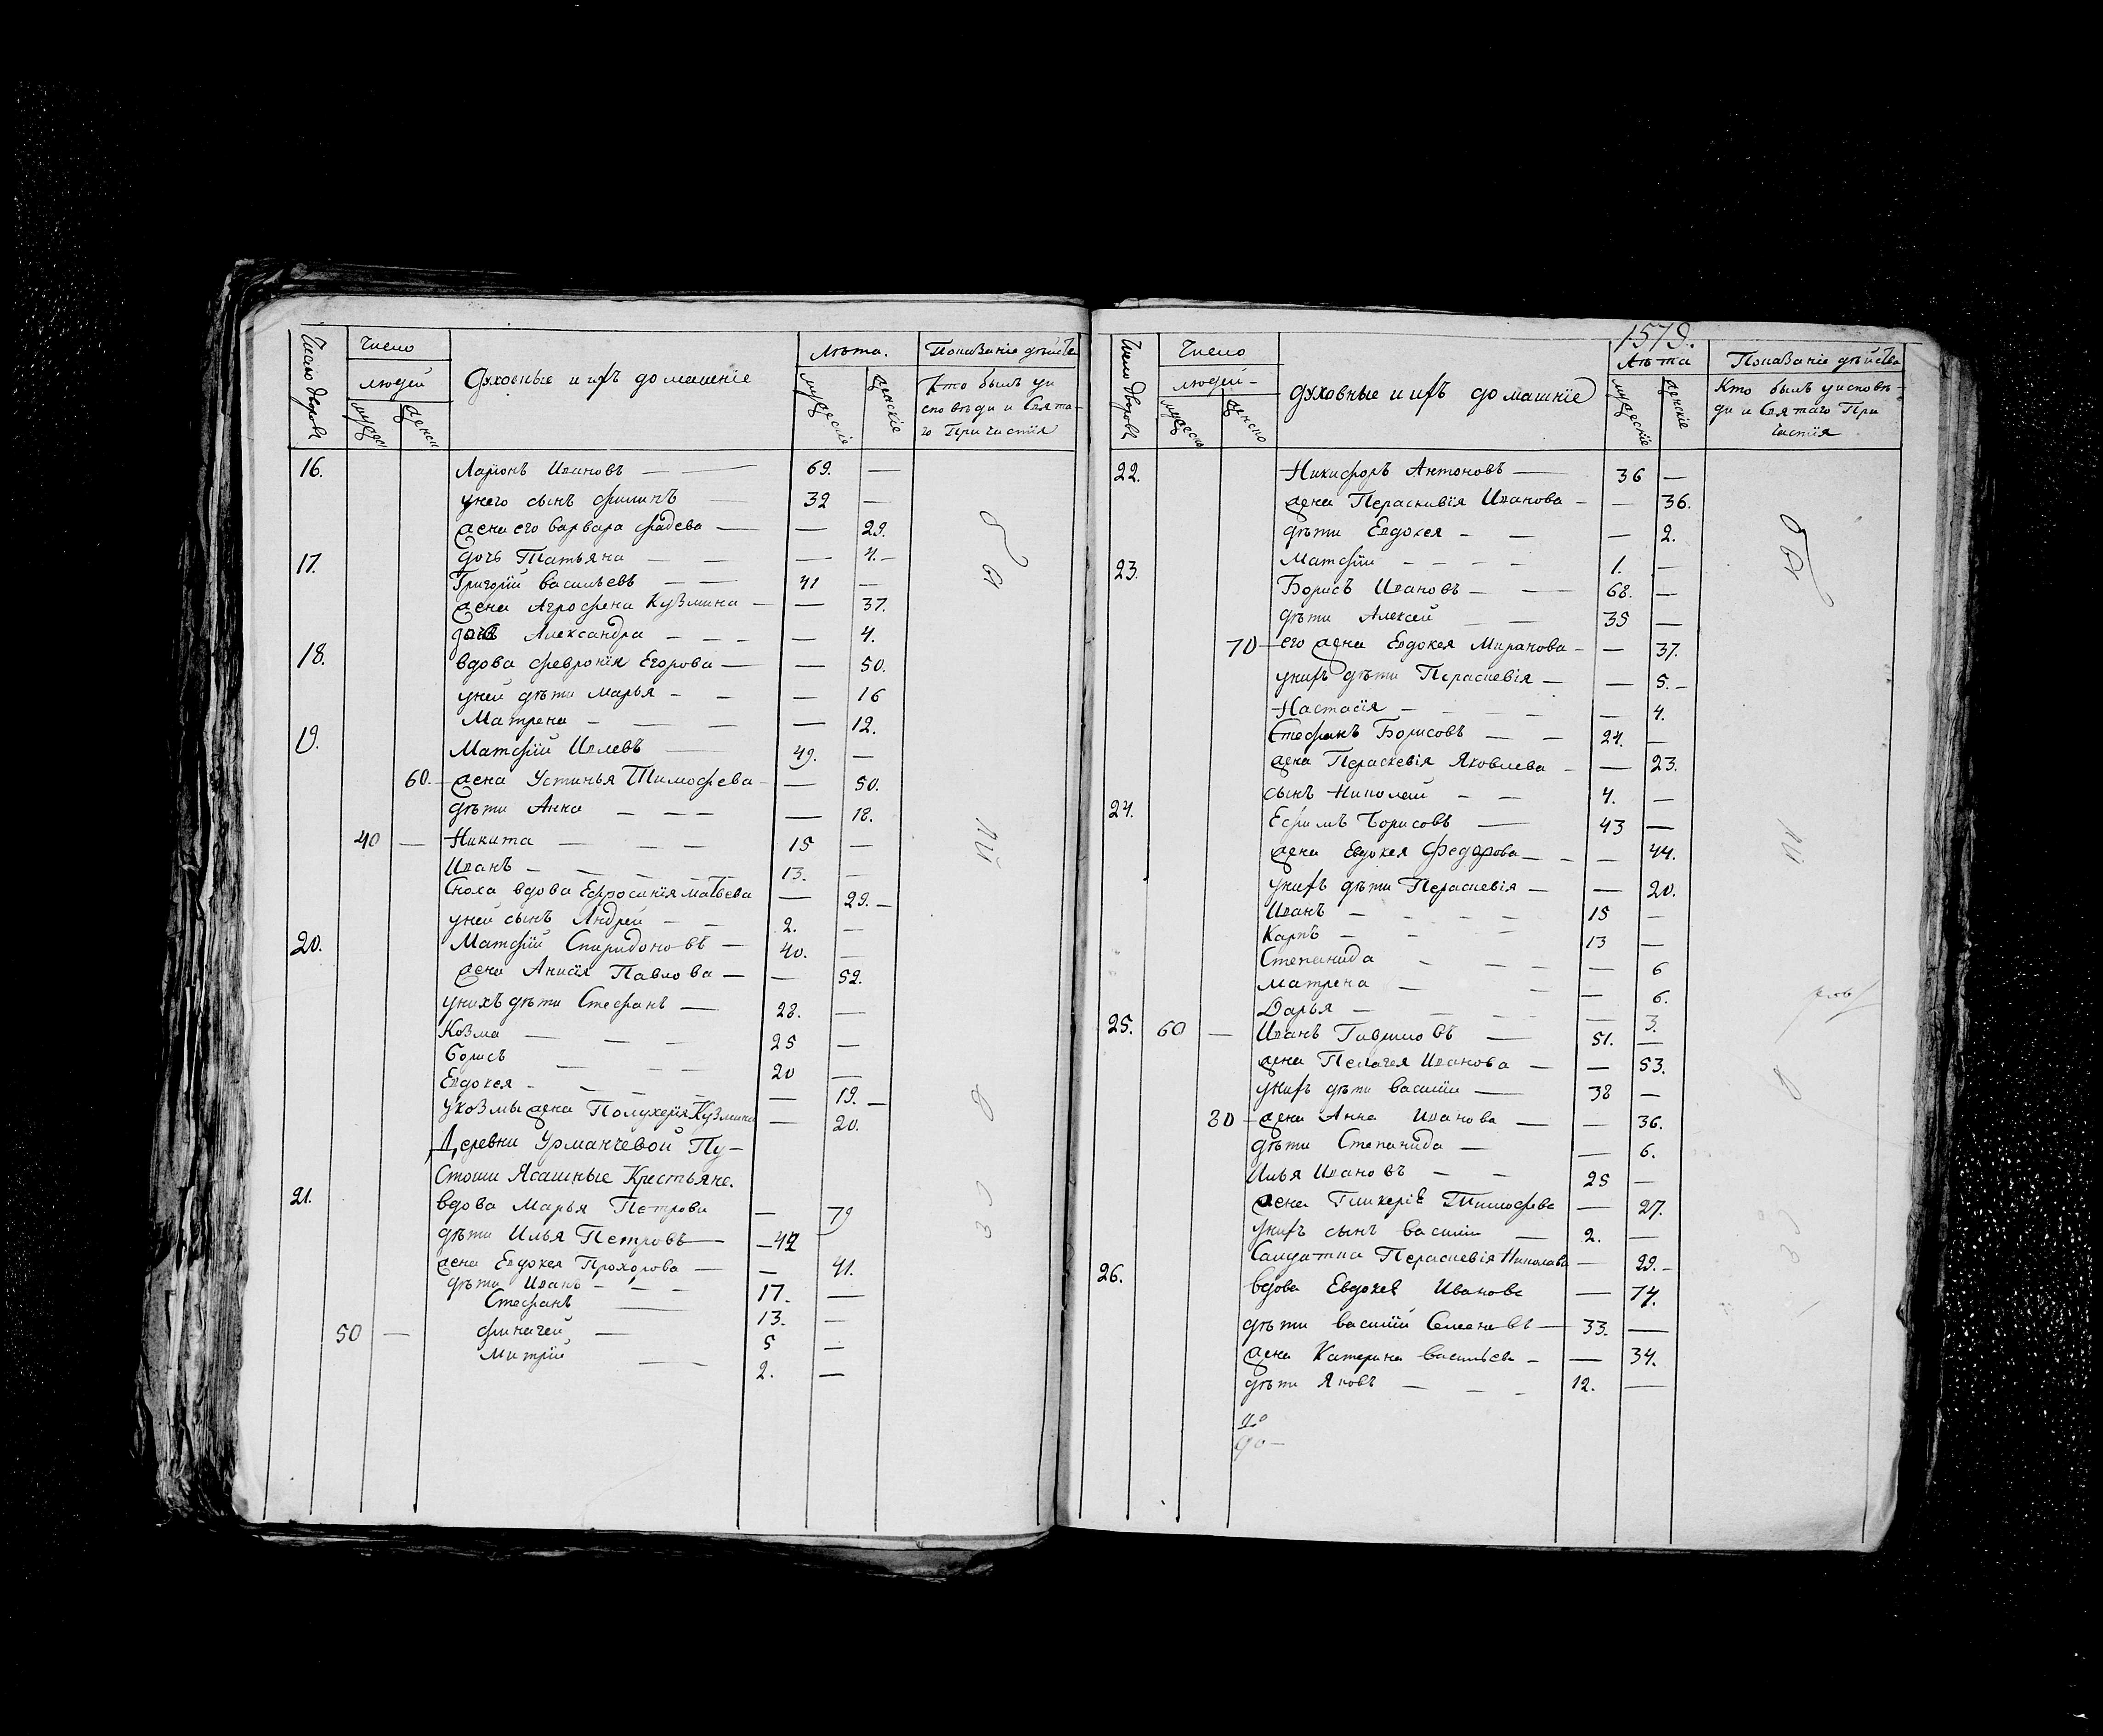 Число дворовъ
Число
людей
мужеск
женск
Духовные и ихъ домашніе
Лѣта.
мужескіе
женскіе
Показаніе дѣйства
Кто былъ у и
сповѣди и Свята
го Причастія
16. Ларіонъ Ивановъ — 69. —
у него сынъ филипъ — 32 —
жена его варвара фадева — — 29.
дочь Татьяна — — 4. —
17. Григорій васильевъ — 41 —
жена Агрофена Кузмина — — 37.
дочь Александра — — 4.
18. вдова февронія Егорова — — 50.
у ней дѣти марья — — 16
Матрена — — 12.
19. Матфій Ивлевъ — 49. —
60. — жена Устинья Тимофева — — 50.
дѣти Анна — — 18.
40 — Никита — 15 —
Иванъ — 13. —
Сноха вдова Ефросинія матвева — 29. —
у ней сынъ Андрей — 2. —
20. Матфій Спиридоновъ — 40. —
жена Анисія Павлова — — 52.
у нихъ дѣти Стефанъ — 28. —
Козма — 25 —
борисъ — 20 —
Евдокея — — 19. —
у козмы жена Полухерія Кузмина — 20.
Деревни Урманчевой Пу-
стоши Ясашные Крестьяне.
21. вдова Марья Петрова — 79
дѣти Илья Петровъ — 42
жена Евдокея Прохорова — — 41.
дѣти Иванъ — 17. —
Стефанъ — 13. —
50 — финагей — 5 —
Митрій — 2. —
1579.
Число дворовъ
Число
людей
мужеско
женско
духовные и ихъ домашніе
Лѣта
мужескіе
женскіе
Показаніе дѣйства
Кто былъ у исповѣ-
ди и Святаго При
частія
22. Никифоръ Антоновъ — 36 —
жена Перасковія Иванова — — 36.
дѣти Евдокея — — 2.
Матфій — 1. —
23. Борисъ Ивановъ — 68. —
дѣти Алексей — 35 —
70 — его жена Евдокея Миранова — — 37.
у нихъ дѣти Перасцевія — — 5. —
Настасія — — 4.
Стефанъ Борисовъ — 24. —
жена Пераскевія Яковлева — — 23.
сынъ Николай — 4. —
24. Ефимъ Борисовъ — 43 —
жена Евдокея Федорова — — 44.
у нихъ дѣти Перасцевія — — 20.
Иванъ — 15 —
Карпъ — 13 —
Степанида — — 6
матрена — — 6.
Дарья — — 3.
25. 60 — Иванъ Гавриловъ — 51. —
жена Пелагея Иванова — — 53.
у нихъ дѣти василіи — 38 —
80 — жена Анна Иванова — — 36.
дѣти Степанида — — 6.
Илья Ивановъ — 25 —
жена Гликерія Тимофева — 27.
у нихъ сынъ василіи — 2. —
Салдатка Перасцевія Николаева — 29. —
26. вдова Евдокея Иванова — 74.
дѣти василій Семеновъ — 33. —
жена Катерина васильева — — 34.
дѣти Яковъ — 12. —